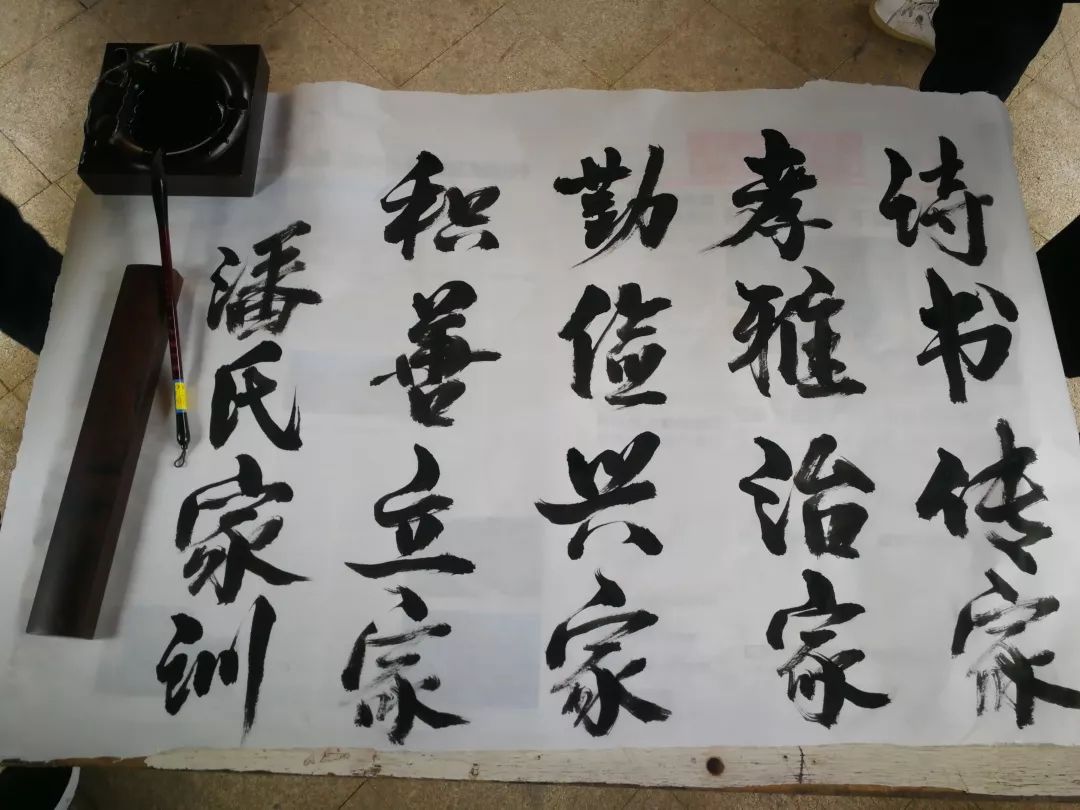 诗书传家
孝雅治家
勤俭兴家
积善立家
潘氏家训